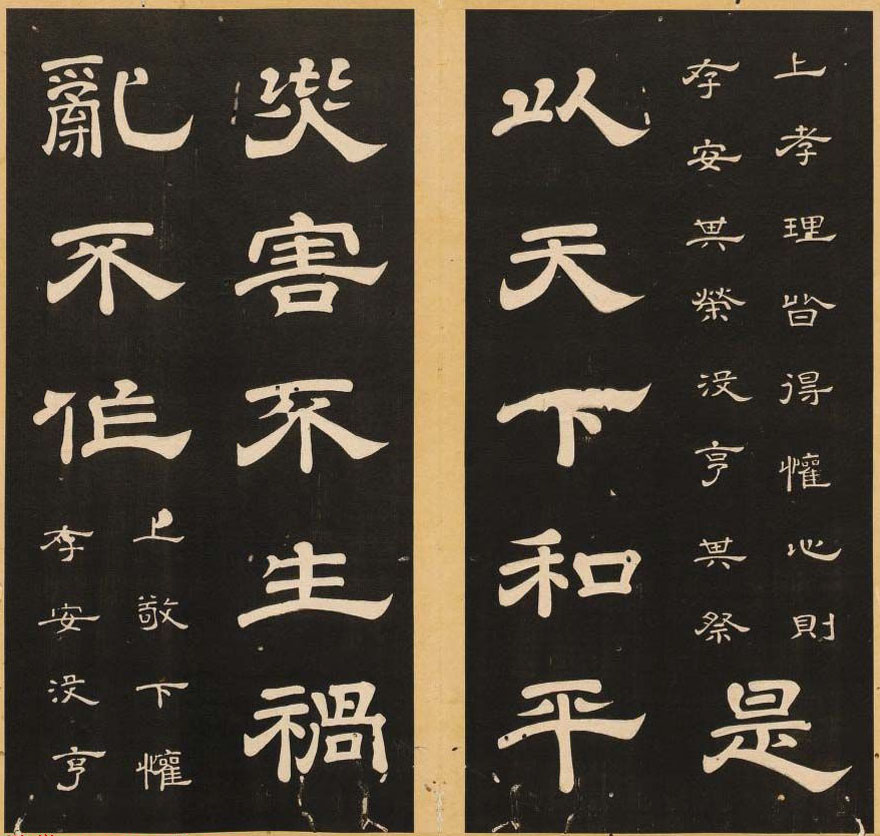 上孝理皆得懽心則
存安其榮没亨其祭
是
以天下和平
災害不生禍
亂不作
上敬下懽
存安没亨